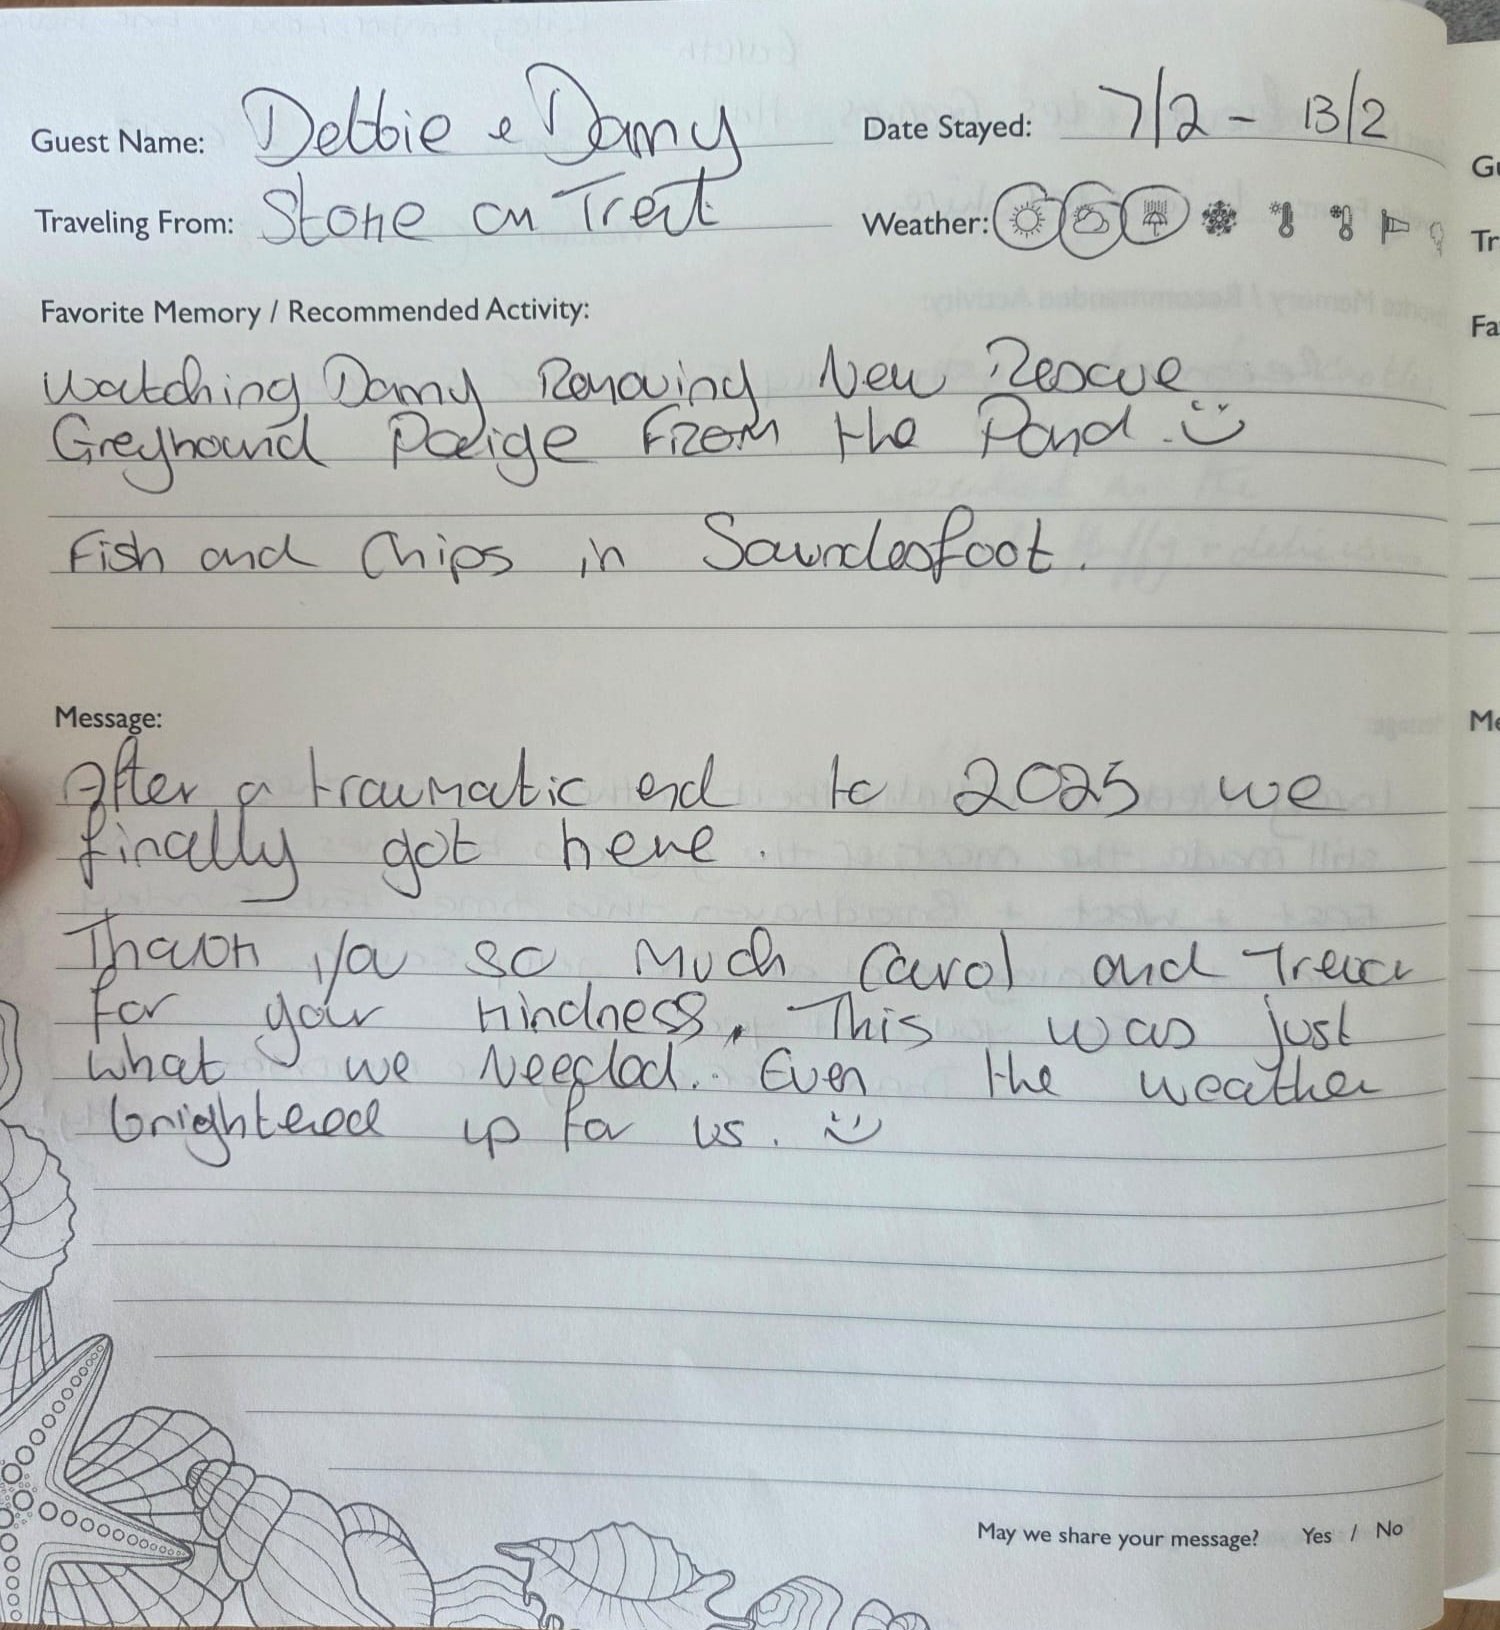 Guest Name: Debbie & Danny
Date Stayed: 7/2 - 13/2
Traveling From: Stone on Trent
Weather:
Favorite Memory / Recommended Activity:
Watching Danny Removing New Rescue
Greyhound Paige FROM the Pond. :)
Fish and Chips in Saundesfoot.
Message:
After a traumatic end to 2025 we
finally got here.
Thank you so Much Carol and Trevor
for your kindness. This was just
what we Needed.. Even the weather
brightened up for us. :)
May we share your message? Yes / No
Gu
Tr
Fa
Me